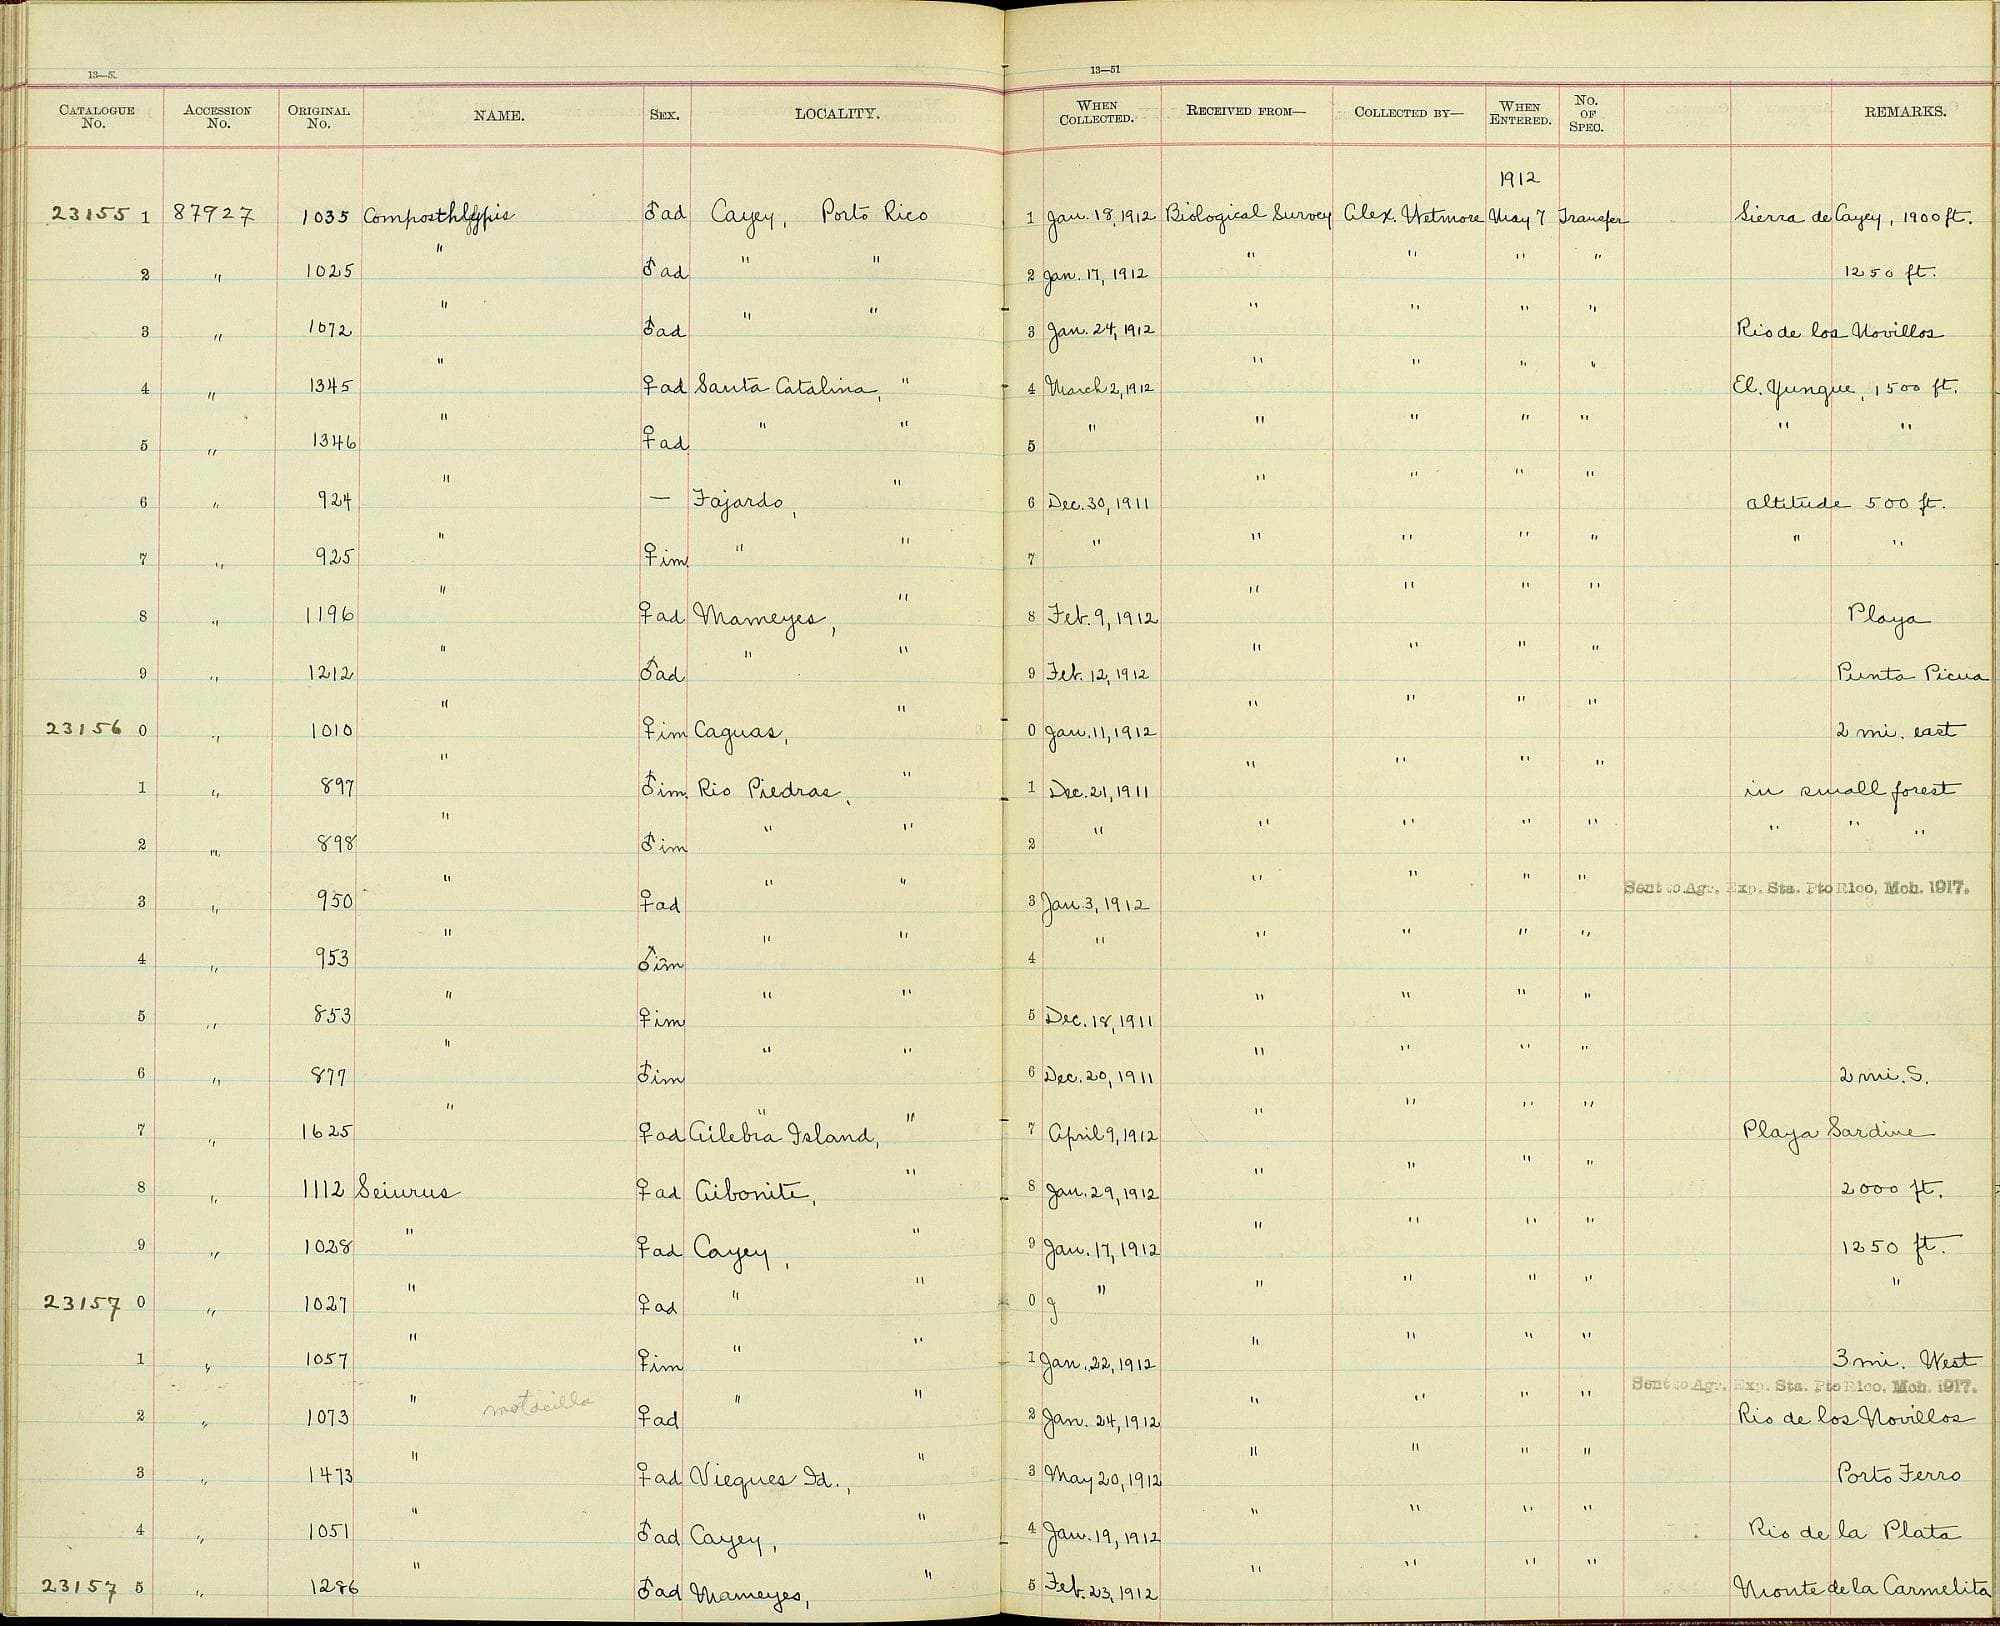 13—5
13—51
CATALOGUE No. ACCESSION No. ORIGINAL No. NAME. SEX. LOCALITY. WHEN COLLECTED. RECEIVED FROM— COLLECTED BY— WHEN ENTERED. No. OF SPEC. REMARKS.
1912
23155 1 87927 1035 ♂ad Cayey, Porto Rico 1 Jan. 18, 1912 Biological Survey Alex. Wetmore May 7 Transfer Sierra de Cayey, 1900 ft.
2 " 1025 " ♂ad " " 2 Jan. 17, 1912 " " " " 1250 ft.
3 " 1072 " ♂ad " " 3 Jan. 24, 1912 " " " " Rio de los Novillos
4 " 1345 " ♀ad Santa Catalina, " 4 March 2, 1912 " " " " El. Yunque, 1500 ft.
5 " 1346 " ♀ad " " 5 " " " " " " "
6 " 924 " — Fajardo, " 6 Dec. 30, 1911 " " " " altitude 500 ft.
7 " 925 " ♀im. " " 7 " " " " " " "
8 " 1196 " ♀ad Mameyes, " 8 Feb. 9, 1912 " " " " Playa
9 " 1212 " ♂ad " " 9 Feb. 12, 1912 " " " " Punta Picua
23156 0 " 1010 " ♀im Caguas, " 0 Jan. 11, 1912 " " " " 2 mi. east
1 " 897 " ♂im. Rio Piedras, " 1 Dec. 21, 1911 " " " " in small forest
2 " 898 " ♂im " " 2 " " " " " " " "
3 " 950 " ♀ad " " 3 Jan. 3, 1912 " " " " Sent to Agr. Exp. Sta. Pto Rico, Mch. 1917.
4 " 953 " ♂im " " 4 " " " " "
5 " 853 " ♀im " " 5 Dec. 18, 1911 " " " "
6 " 877 " ♂im " " 6 Dec. 20, 1911 " " " " 2 mi. S.
7 " 1625 " ♀ad Culebra Island, " " 7 April 9, 1912 " " " " Playa Sardine
8 " 1112 Seiurus ♀ad Aibonito, " 8 Jan. 29, 1912 " " " " 2000 ft.
9 " 1028 " ♀ad Cayey, " 9 Jan. 17, 1912 " " " " 1250 ft.
23157 0 " 1027 " ♀ad " " 0 J " " " " " "
1 " 1057 " ♀im " " 1 Jan. 22, 1912 " " " " 3 mi. West
Sent to Agr. Exp. Sta. Pto Rico, Mch. 1917.
2 " 1073 " motacilla ♀ad " " 2 Jan. 24, 1912 " " " " Rio de los Novillos
3 " 1473 " ♀ad Vieques Id., " 3 May 20, 1912 " " " " Porto Ferro
4 " 1051 " ♂ad Cayey, " 4 Jan. 19, 1912 " " " " Rio de la Plata
23157 5 " 1286 " ♂ad Mameyes, " 5 Feb. 23, 1912 " " " " Monte de la Carmelita